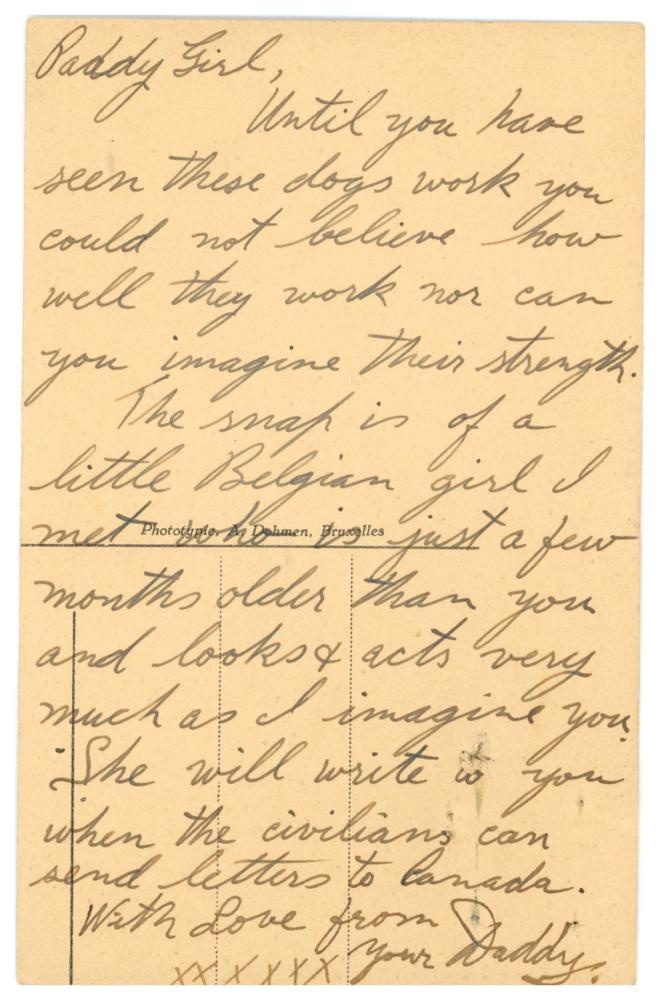 Paddy Girl,
Until you have
seen these dogs work you
could not believe how
well they work nor can
you imagine their strength.
The snap is of a
little Belgian girl I
met who is just a few
Phototypie, A. Dohmen, Bruxelles
months older than you
and looks & acts very
much as I imagine you.
She will write to you
when the civilians can
send letters to Canada.
With Love from
your Daddy.
xx x x x x